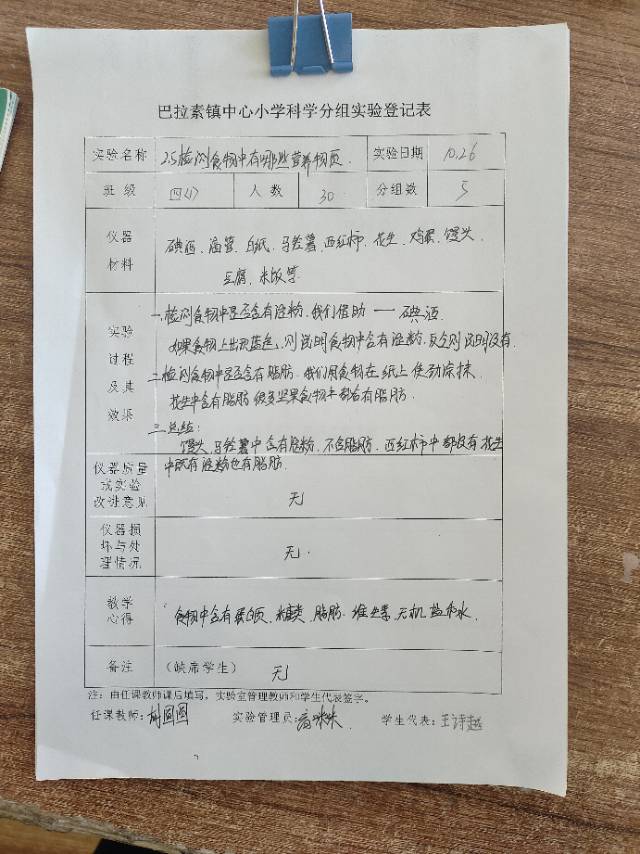 巴拉素镇中心小学科学分组实验登记表
实验名称 2.5检测食物中有哪些营养物质. 实验日期 10.26
班级 四(1) 人数 30 分组数 5
仪器材料 碘酒、滴管、白纸、马铃薯、西红柿、花生、鸡蛋、馒头
豆腐、米饭等
实验过程及其效果
一.检测食物中是否含有淀粉.我们借助——碘酒
如果食物上出现蓝色,则说明食物中含有淀粉,反之则说明没有.
二.检测食物中是否含有脂肪.我们用食物在纸上使劲涂抹.
花生中含有脂肪 很多坚果食物 都含有脂肪.
三.总结:
馒头,马铃薯中含有淀粉,不含脂肪.西红柿中都没有 花生
中既有淀粉也有脂肪.
仪器质量或实验改进意见 无
仪器损坏与处理情况 无.
教学心得 食物中含有蛋白质、糖类、脂肪、维生素、无机盐和水.
备注 (缺席学生) 无
注:由任课教师课后填写,实验室管理教师和学生代表签字。
任课教师: 圆圆 实验管理员: 学生代表:王诗越